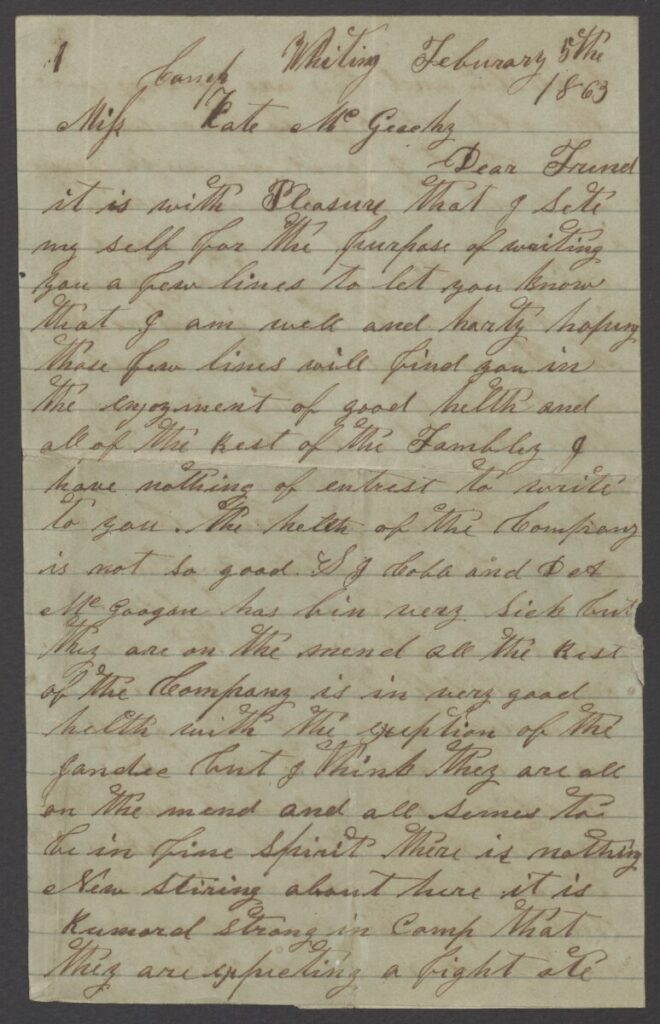 1
Camp Whiting Feburary 5the
1863
Miss Kate McGeachy
Dear Frend
it is with Pleasure that I sete
my self for the purpose of writing
you a few lines to let you know
that I am well and harty hoping
those few lines will find you in
the enjoyment of good helth and
all of the Rest of the Fambley I
have nothing of entrest to write
to you. the helth of the Company
is not so good S J Cobb and D A
McGoogan has bin very sick but
they are on the mend all the Rest
of the Company is in very good
helth with the exception of the
Jandec but I think they are all
on the mend and all semes to
be in fine spirit there is nothing
New stiring about here it is
Rumord strong in Camp that
they are expecting a fight ate